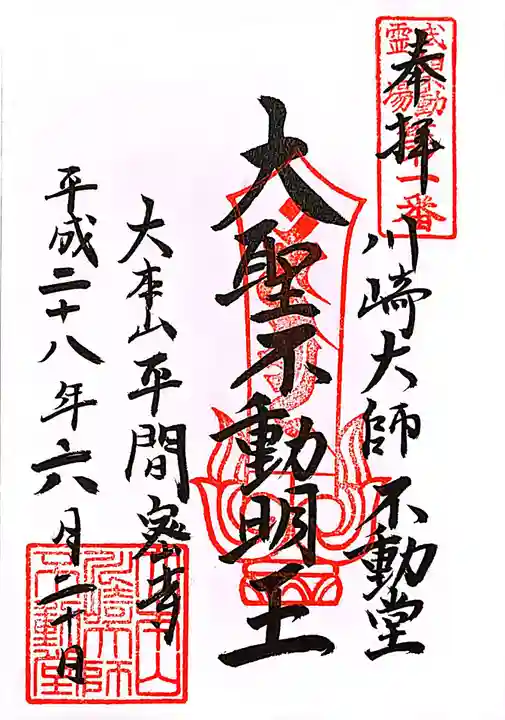 奉拝
川崎大師 不動堂
大聖不動明王
大本山平間寺
平成二十八年六月二十日